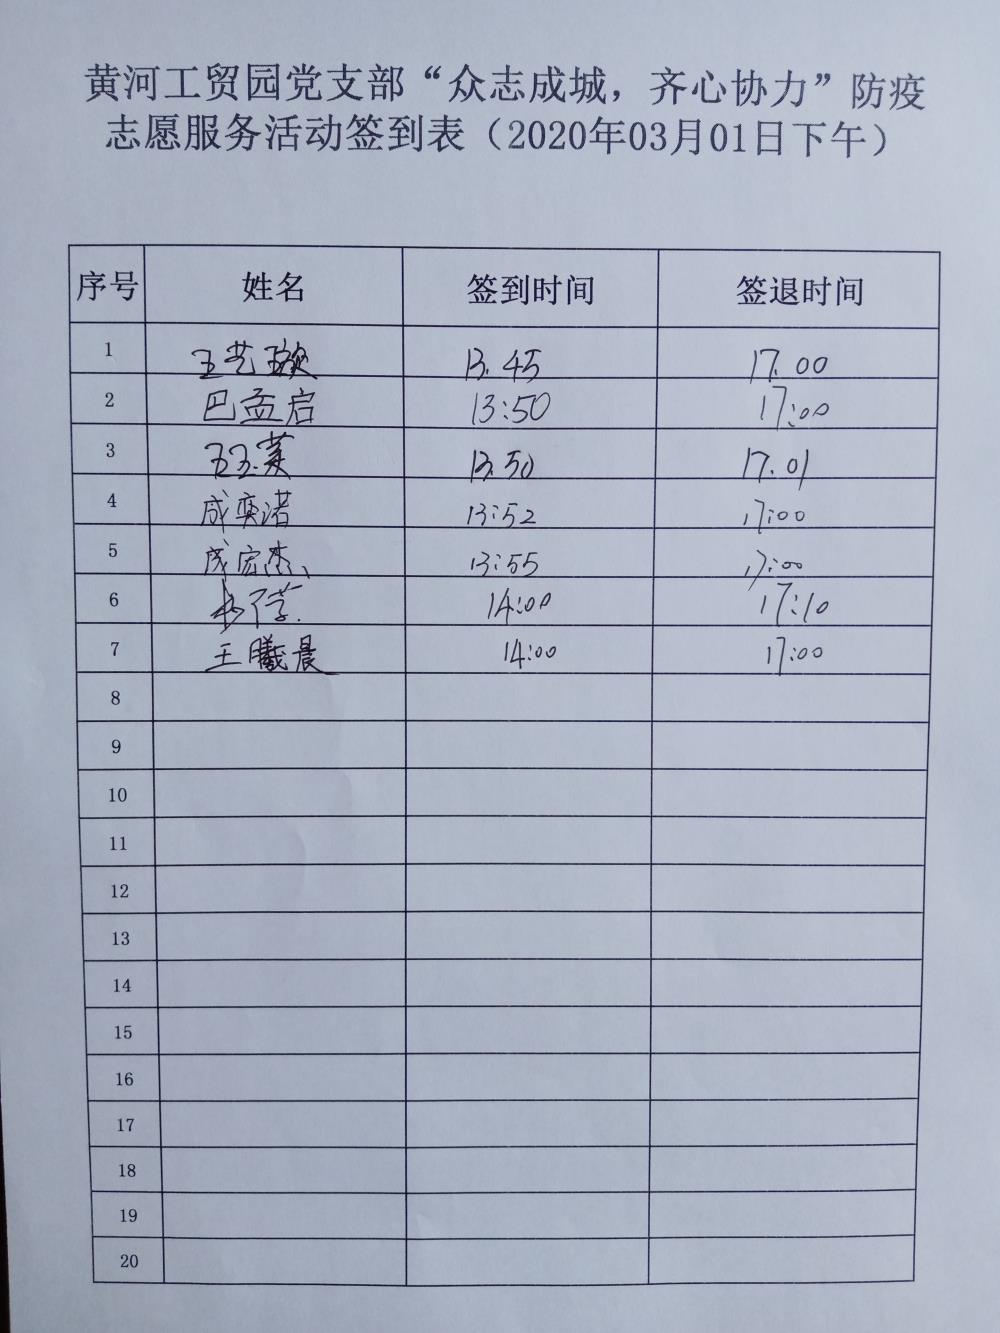 黄河工贸园党支部“众志成城，齐心协力”防疫
志愿服务活动签到表（2020年03月01日下午）
序号 姓名 签到时间 签退时间
1 王艺璇 13.45 17.00
2 巴孟启 13:50 17:00
3 13.50 17.01
4 成奕诺 13:52 17:00
5 成宏杰 13:55 17:00
6 14:00 17:10
7 王曦晨 14:00 17:00
8
9
10
11
12
13
14
15
16
17
18
19
20